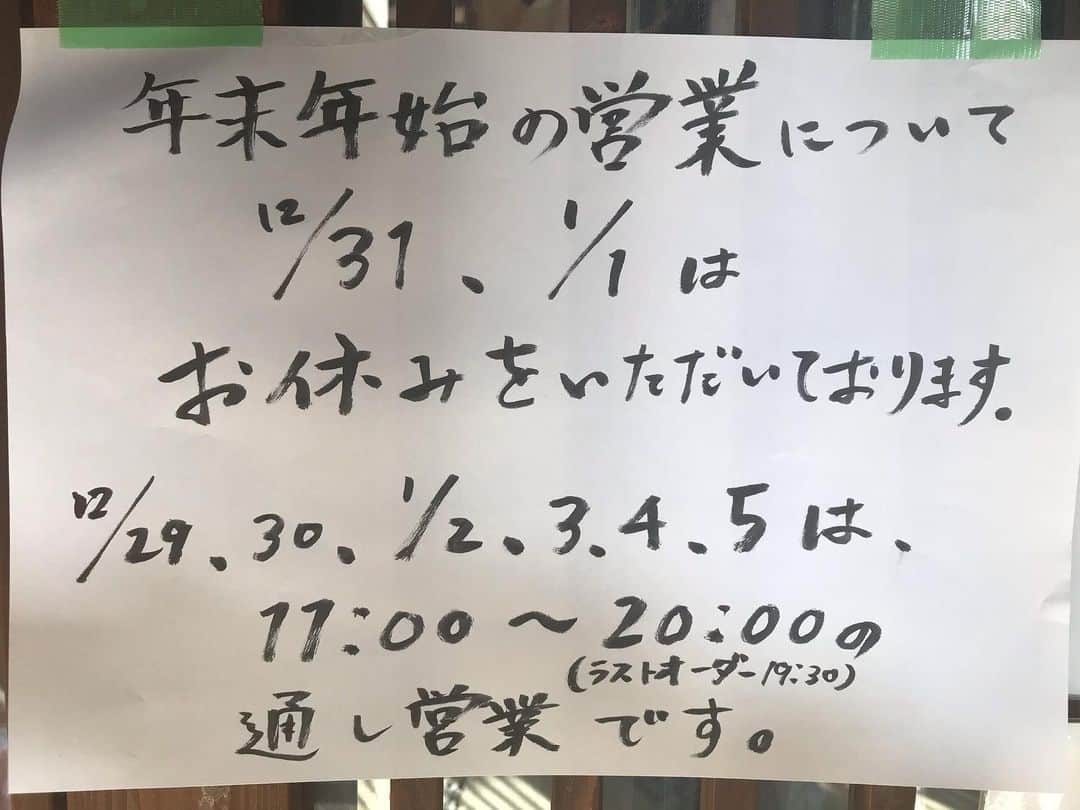 年末年始の営業について
12/31、1/1は
お休みをいただいております。
12/29、30、1/2、3、4、5は、
11:00〜20:00の
(ラストオーダー19:30)
通し営業です。